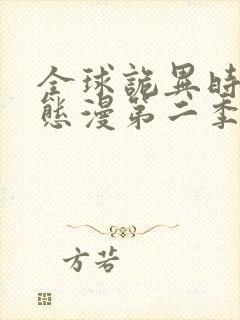 全球詭異時
態漫第二季
方若